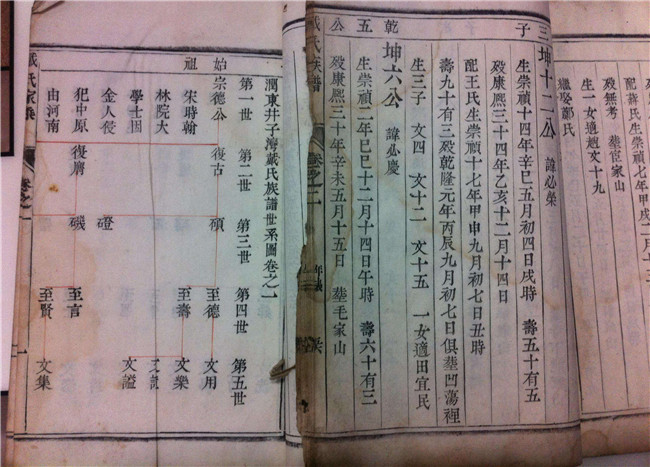 配蔣氏生崇禎七年甲戌二月
歿無考 葬宦家山
生一女適趙文十九
繼娶鄭氏
三子
坤十二公 諱必榮
生崇禎十四年辛巳五月初四日戌時 壽五十有五
歿康熙三十四年乙亥十二月十四日
配王氏生崇禎十七年甲申九月初七日丑時
壽九十有三歿乾隆元年丙辰九月初七日俱葬凹蕩裡
生三子 文四 文十二 文十五 一女適田宜民
乾五公
坤六公 諱必慶
生崇禎二年己巳十二月十四日午時 壽六十有三
歿康熙三十年辛未五月十五日 葬毛家山
戴氏族譜 卷之二
潤東井子灣戴氏族譜世系圖卷之一
第一世 第二世 第三世 第四世 第五世
始祖
宗德公 復古 碩 至德 文用
宋時翰 至壽 文樂
林院大
學士因 文謐
金人侵 磴
犯中原 復膺 磯 至言
由河南 至賢 文集
戴氏家乘 卷之一